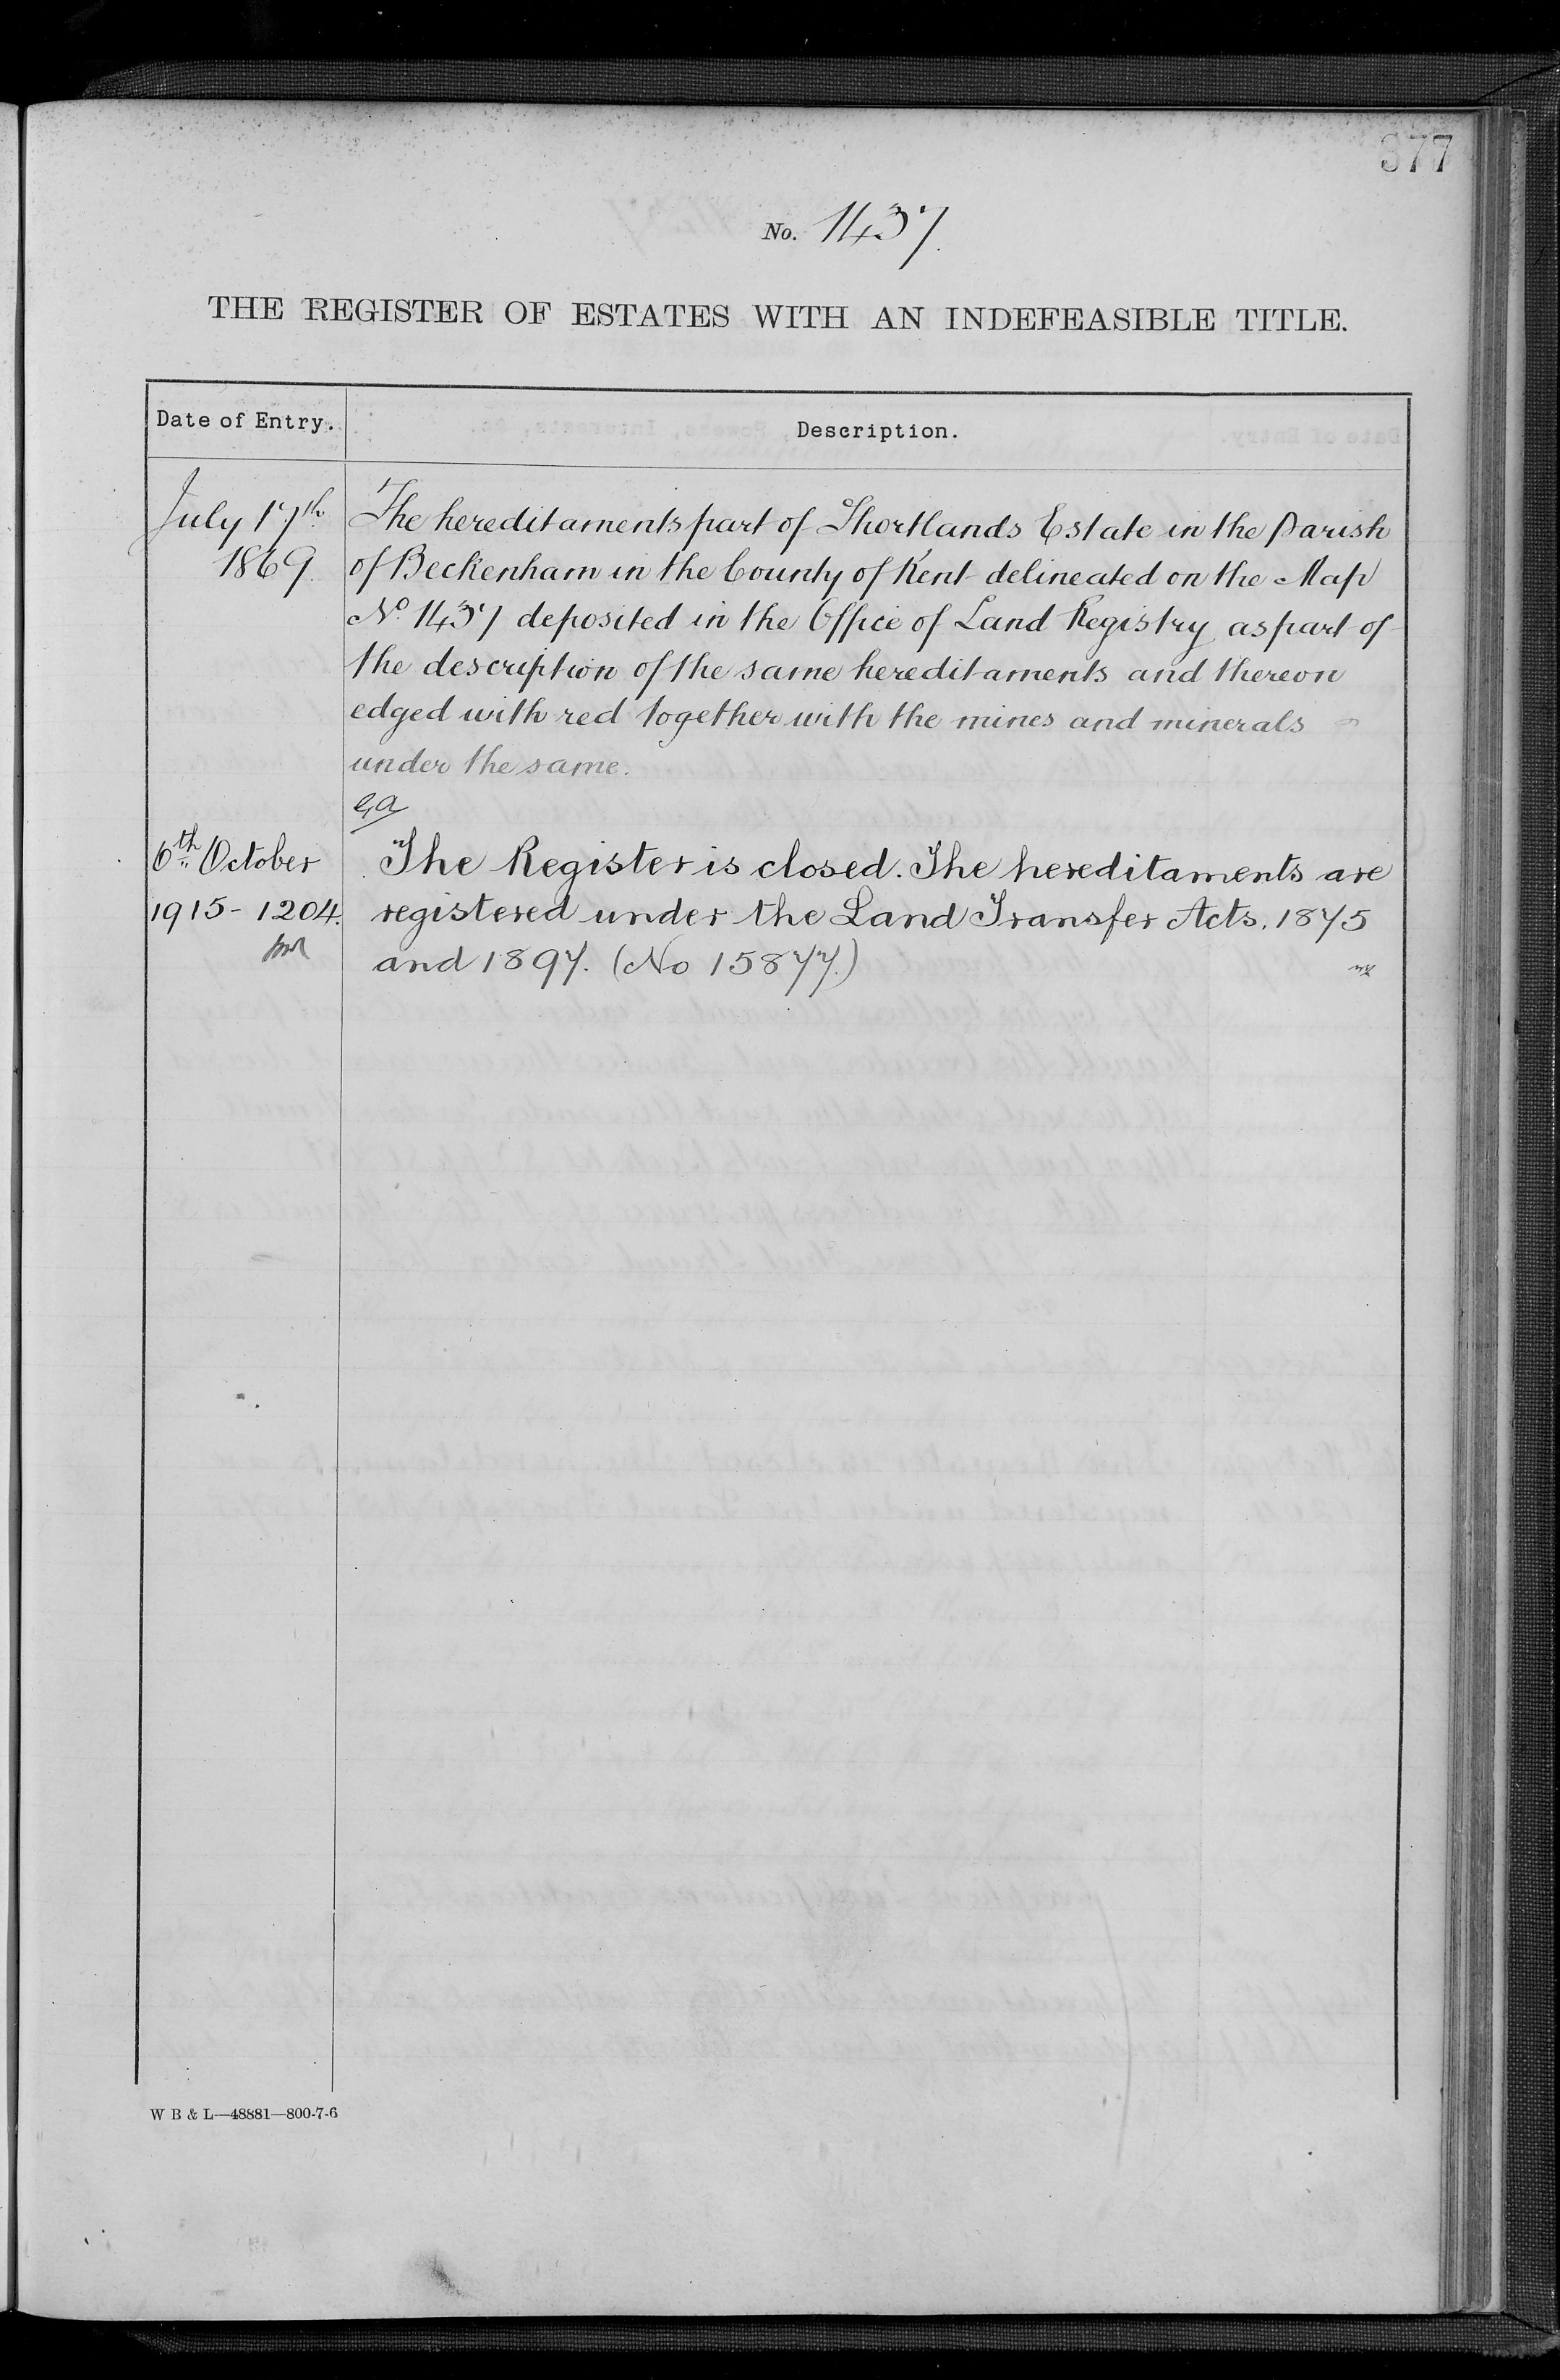 377
No. 1437.
THE REGISTER OF ESTATES WITH AN INDEFEASIBLE TITLE.
Date of Entry.
Description.
July 17th
1869.
The hereditaments part of Shortlands Estate in the Parish
of Beckenham in the County of Kent delineated on the Map
No. 1437 deposited in the Office of Land Registry as part of
the description of the same hereditaments and thereon
edged with red together with the mines and minerals
under the same.
6th October
1915 - 1204.
The Register is closed. The hereditaments are
registered under the Land Transfer Acts, 1875
and 1897. (No 15877.)
W B & L—48881—800-7-6